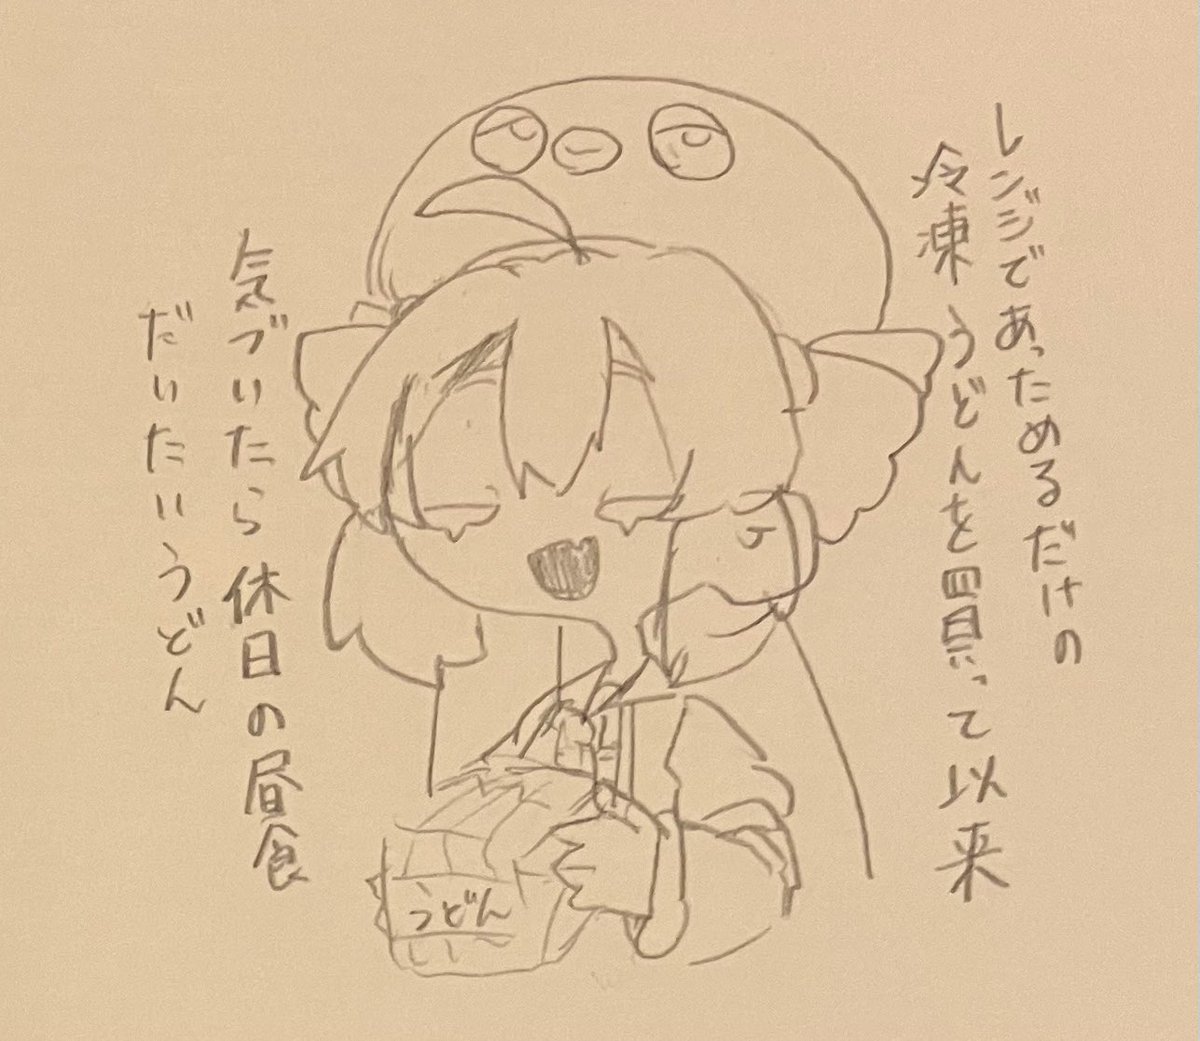 レンジであっためるだけの
冷凍うどんを買って以来
気づいたら休日の昼食
だいたいうどん
うどん